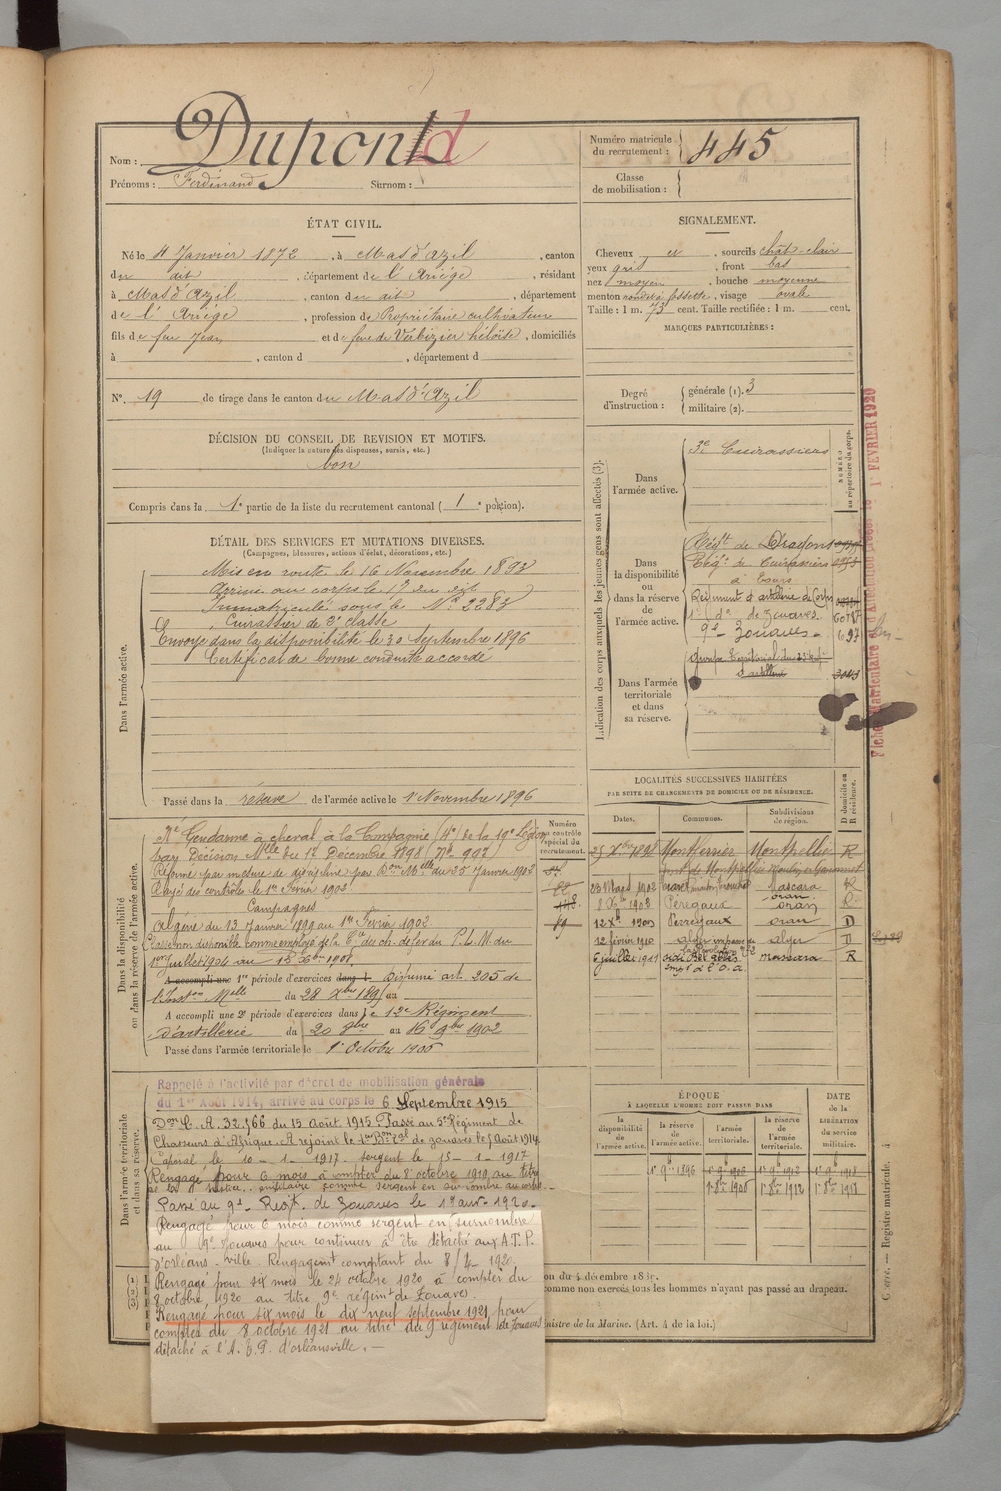 Nom : Dupont d
Prénoms : Ferdinand Surnom :
Numéro matricule du recrutement : 445
Classe de mobilisation :
ÉTAT CIVIL.
Né le 4 Janvier 1872, à Mas d'Azil, canton
du dit, département de l'Ariège, résidant
à Mas d'Azil, canton du dit, département
de l'Ariège, profession de Propriétaire cultivateur
fils de feu Jean et de feue de Verbizier Héloïse, domiciliés
à , canton d , département d
N°. 19 de tirage dans le canton du Mas d'Azil
SIGNALEMENT.
Cheveux et, sourcils chât-clair
yeux gris, front bas
nez moyen, bouche moyenne
menton rond à fossette, visage ovale
Taille : 1 m. 73 cent. Taille rectifiée : 1 m. cent.
MARQUES PARTICULIÈRES :
Degré d'instruction : générale (1). 3
militaire (2).
DÉCISION DU CONSEIL DE REVISION ET MOTIFS.
(Indiquer la nature des dispenses, sursis, etc.)
bon
Compris dans la 1e partie de la liste du recrutement cantonal ( 1 e portion).
DÉTAIL DES SERVICES ET MUTATIONS DIVERSES.
(Campagnes, blessures, actions d'éclat, décorations, etc.)
Dans l'armée active.
Mis en route le 16 Novembre 1893
Arrivé au corps le 17 du dit
Immatriculé sous le N° 2283
Cuirassier de 2e classe
Envoyé dans la disponibilité le 30 Septembre 1896
Certificat de bonne conduite accordé
Passé dans la réserve de l'armée active le 1 Novembre 1896
Indication des corps auxquels les jeunes gens sont affectés (3).
NUMÉRO au répertoire du corps.
Dans l'armée active.
3e Cuirassiers
Dans la disponibilité ou dans la réserve de l'armée active.
Régt de Dragons
Régt de Cuirassiers
à Tours
Régiment d'artillerie de Corps
1er do de Zouaves
9e Zouaves 697
Dans l'armée territoriale et dans sa réserve.
Groupe territorial du
d'artillerie
Fiche Matriculaire et d'Affectation 1 FEVRIER 1920
LOCALITÉS SUCCESSIVES HABITÉES
PAR SUITE DE CHANGEMENTS DE DOMICILE OU DE RÉSIDENCE.
Dates. Communes. Subdivisions de région. D domicile ou R résidence.
25 Xbre 1898 Montferrier Montpellier R
23 Mars 1902 Mascara R
8 Xbre 1903 Perigaux oran R
12 Xbre 1903 Perrégaux oran D
12 février 1910 alger alger D
6 juillet 1917 Sidi Bel Abbès mascara R
Dans la disponibilité ou dans la réserve de l'armée active.
Numéro au contrôle spécial du recrutement.
Né Gendarme à cheval à la Compagnie (4e) de la 19e Légion
par Décision Mlle du 17 Décembre 1898 (N° 997)
Réformé par mesure de discipline par Don Melle du 25 Janvier 1902
Rayé des contrôles le 1er Février 1902
Campagnes
Algérie du 13 Janvier 1899 au 1er Février 1902
Classé non disponible comme employé de la Cie des ch. de fer du P.L.M. du
1er juillet 1904 au
A accompli une 1re période d'exercices dans l Dispensé art. 205 de
l'Inston Melle du 28 Xbre 1895 au
A accompli une 2e période d'exercices dans le 12e Régiment
d'artillerie du 20 8bre au 16 9bre 1902
Passé dans l'armée territoriale le 1 Octobre 1906
Dans l'armée territoriale et dans sa réserve.
Rappelé à l'activité par décret de mobilisation générale
du 1er Août 1914, arrivé au corps le 6 Septembre 1915
Don C.A. 32,566 du 15 Août 1915 Passé au 5e Régiment de
Chasseurs d'Afrique. A rejoint le 1er Bon Tal de zouaves le 5 Août 1914
Caporal le 10-1-1917. sergent le 15-1-1917
Rengagé pour 6 mois à compter du 8 octobre 1919 au titre
comme sergent en surnombre
Passé au 9e Regt. de Zouaves le 1er avr 1920.
Rengagé pour 6 mois comme sergent en surnombre
au 9e Zouaves pour continuer à être détaché aux A.T.P.
d'orléans-ville. Rengagemt comptant du 8/4-1920
Rengagé pour six mois le 24 octobre 1920 à compter du
8 octobre 1920 au titre 9e régimt de Zouaves.
Rengagé pour six mois le dix neuf septembre 1921 pour
compter du 8 octobre 1921 au titre du 9 régiment de Zouaves
détaché à l'A.T.P. d'orléansville. —
ÉPOQUE
À LAQUELLE L'HOMME DOIT PASSER DANS
la disponibilité de l'armée active. la réserve de l'armée active. l'armée territoriale. la réserve de l'armée territoriale.
DATE de la LIBÉRATION du service militaire.
1er 9bre 1896 1er 9bre 1906 1er 9bre 1912 1er 9bre 1918
1er 8bre 1906 1er 8bre 1912 1er 8bre 1918
comme non exercés tous les hommes n'ayant pas passé au drapeau.
ministre de la Marine. (Art. 4 de la loi.)
Registre matricule.